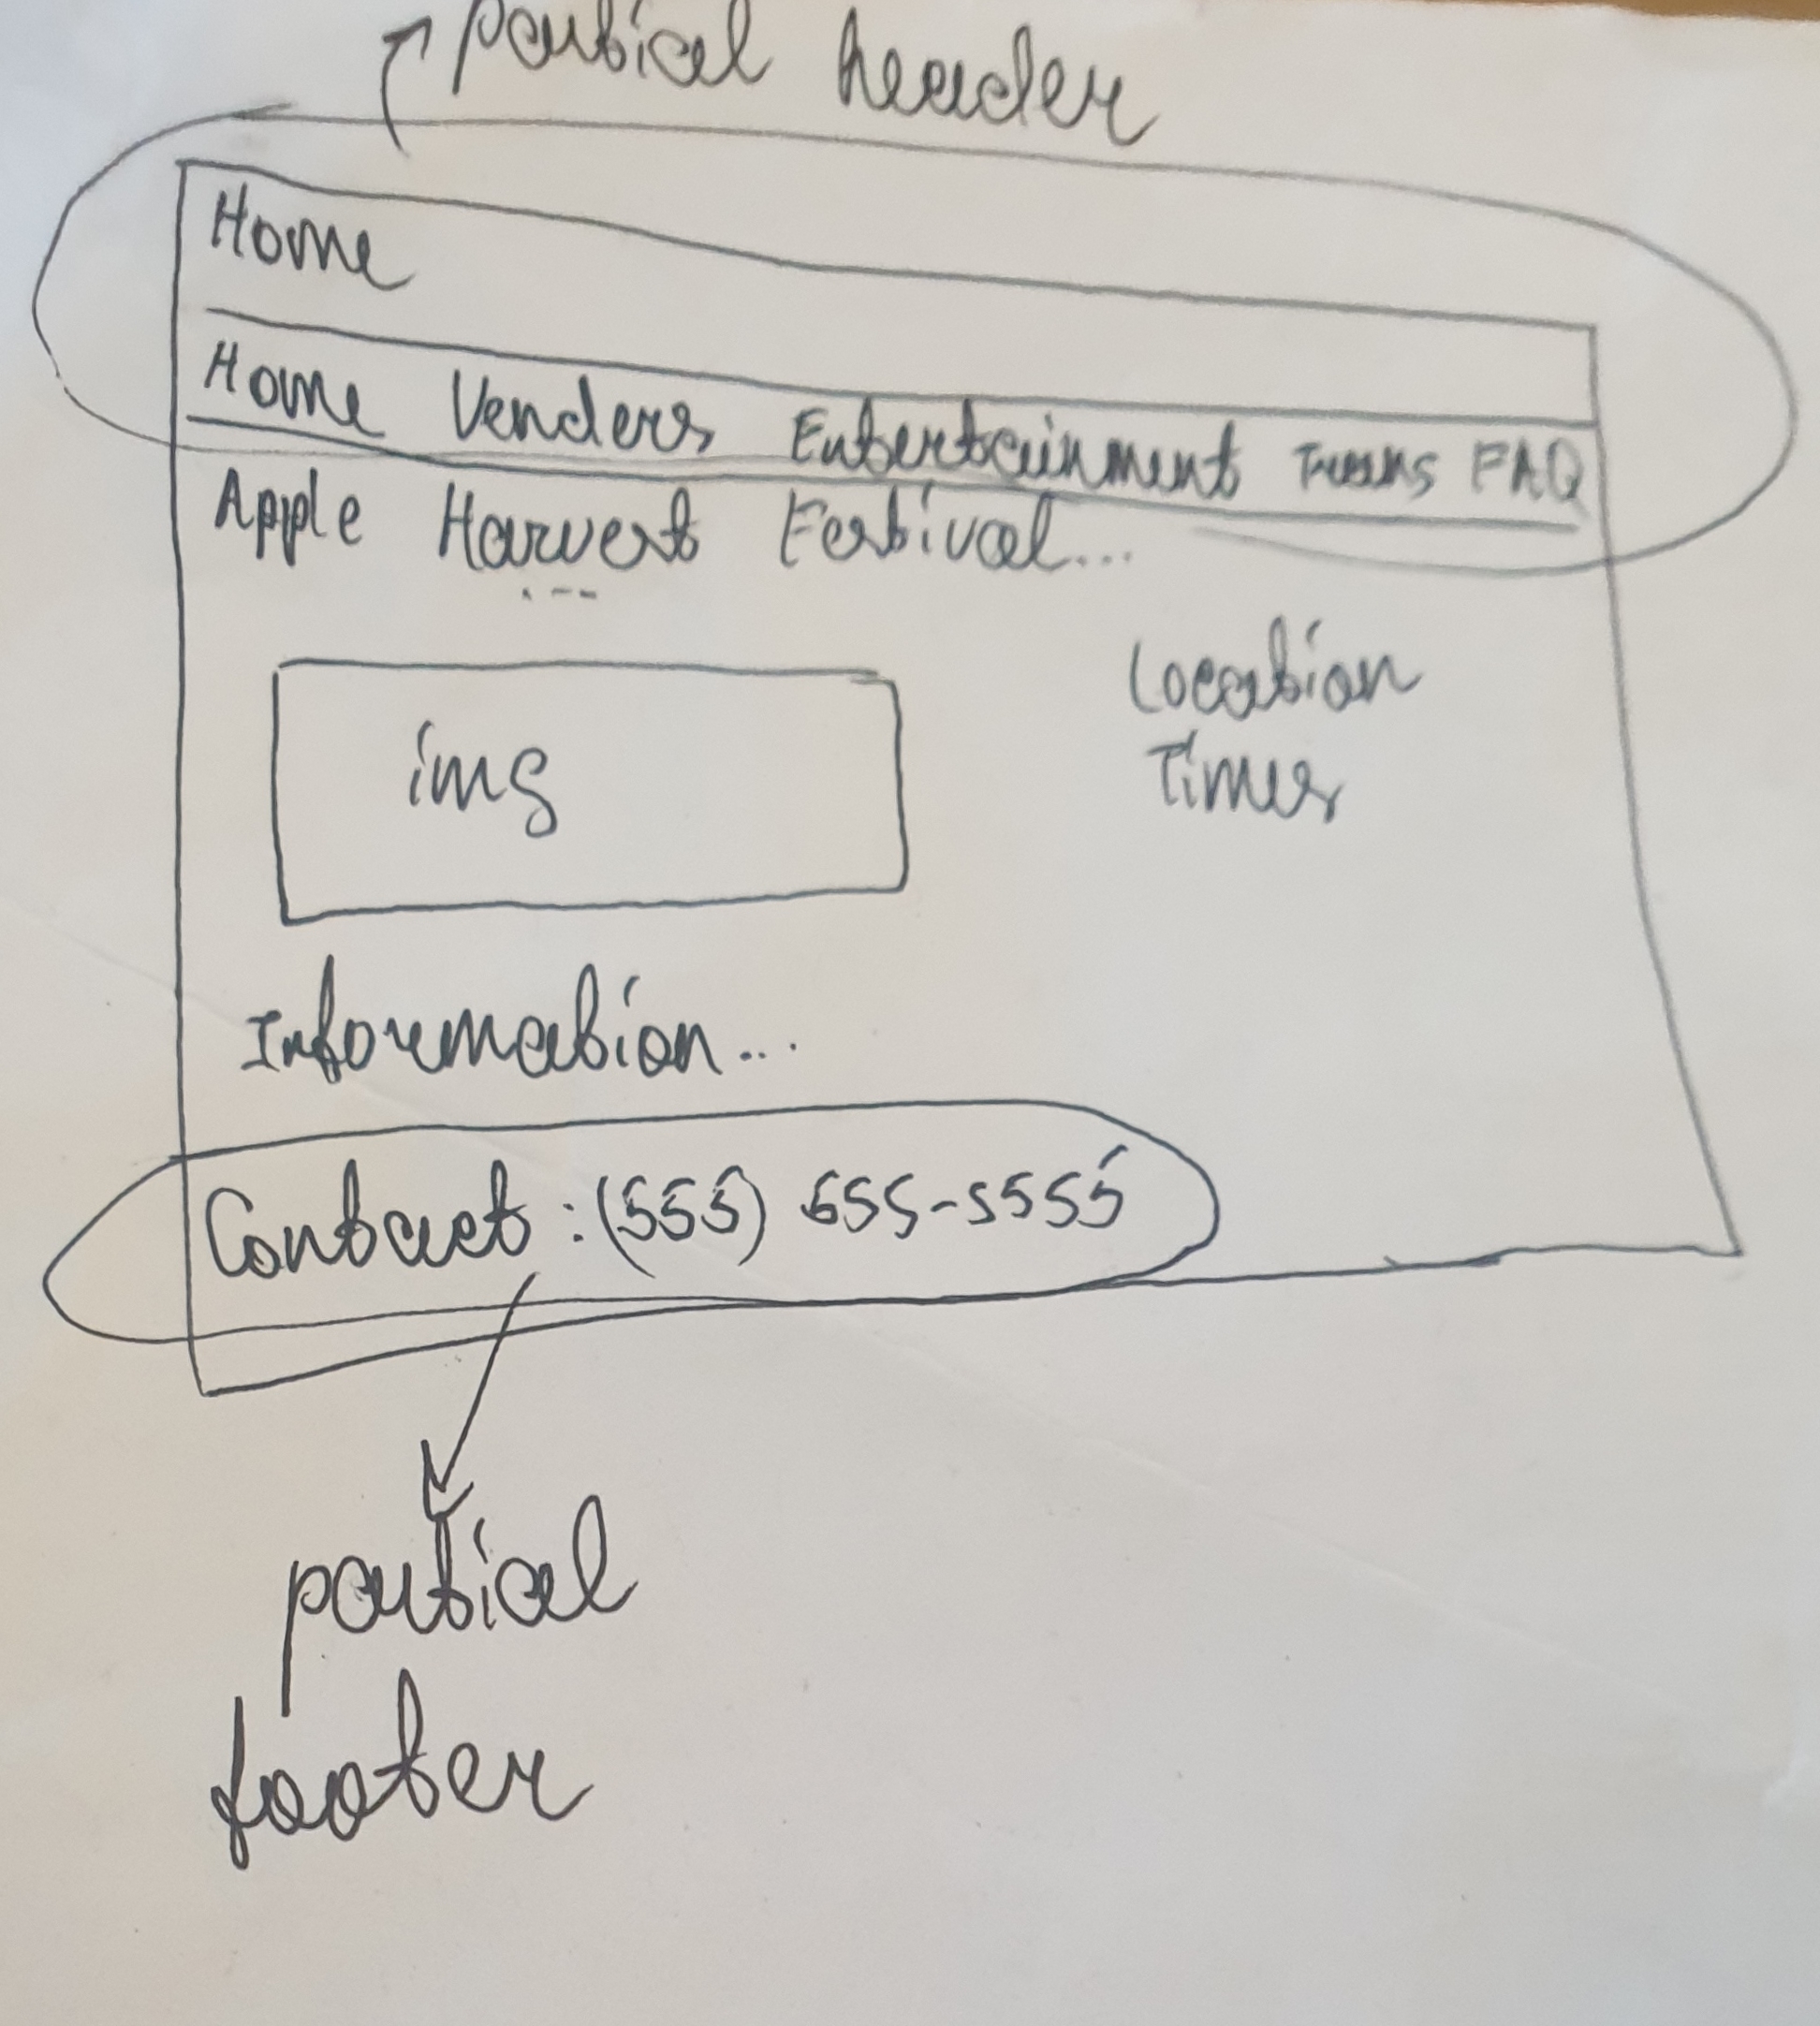 partial header
Home
Home Venders Entertainment FAQ
Apple Harvest Festival...
Location
Times
img
Information...
Contact : (555) 555-5555
partial
footer